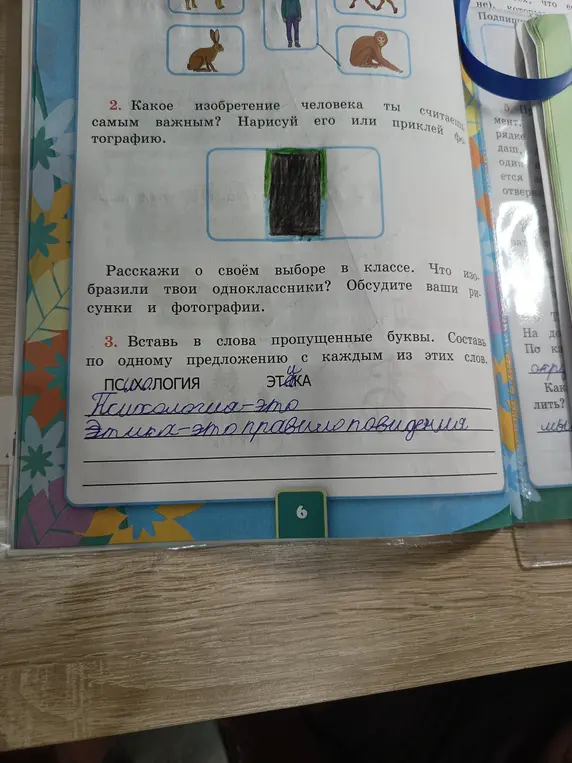 2. Какое изобретение человека ты считаешь
самым важным? Нарисуй его или приклей фо-
тографию.
Расскажи о своём выборе в классе. Что изо-
бразили твои одноклассники? Обсудите ваши ри-
сунки и фотографии.
3. Вставь в слова пропущенные буквы. Составь
по одному предложению с каждым из этих слов.
ПСИХОЛОГИЯ ЭТИКА
Психология-это
Этика-это правило повидения
6
не),
Подпиши
5.
мент,
рядке
даш,
один
ется
отвер
На до
По ка
окра
Как
лить?
мы